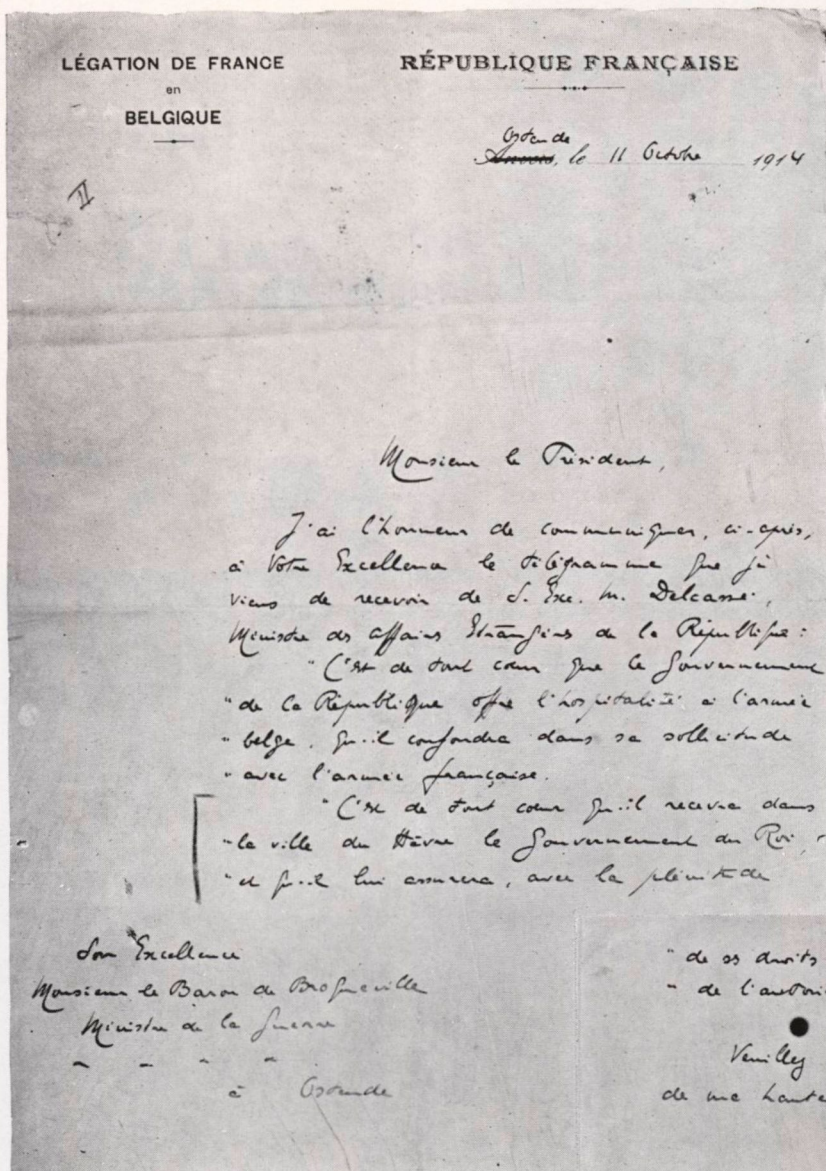 LÉGATION DE FRANCE
en
BELGIQUE
RÉPUBLIQUE FRANÇAISE
Ostende
Anvers, le 11 Octobre 1914
II
Monsieur le Président,
J'ai l'honneur de communiquer, ci-après,
à Votre Excellence le télégramme que je
viens de recevoir de S. Exc. M. Delcassé,
Ministre des Affaires Etrangères de la République :
" C'est de tout cœur que le Gouvernement
" de la République offre l'hospitalité à l'armée
" belge, qu'il confondra dans sa sollicitude
" avec l'armée française.
" C'est de tout cœur qu'il recevra dans
" la ville du Hâvre le Gouvernement du Roi,
" et qu'il lui assurera, avec la plénitude
Son Excellence
Monsieur le Baron de Broqueville
Ministre de la Guerre
" " " "
à Ostende
" de ses droits
" de l'autori
Veuillez
de ma haute